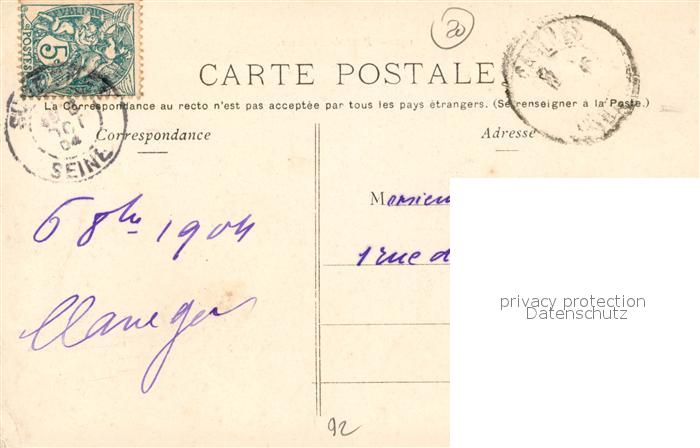 20
5
POSTES
CARTE POSTALE
La Correspondance au recto n'est pas acceptée par tous les pays étrangers. (Se renseigner à la Poste.)
Correspondance
Adresse
OCT
04
SEINE
6 8bre 1904
Monsieur
1 rue d
privacy protection
Datenschutz
92